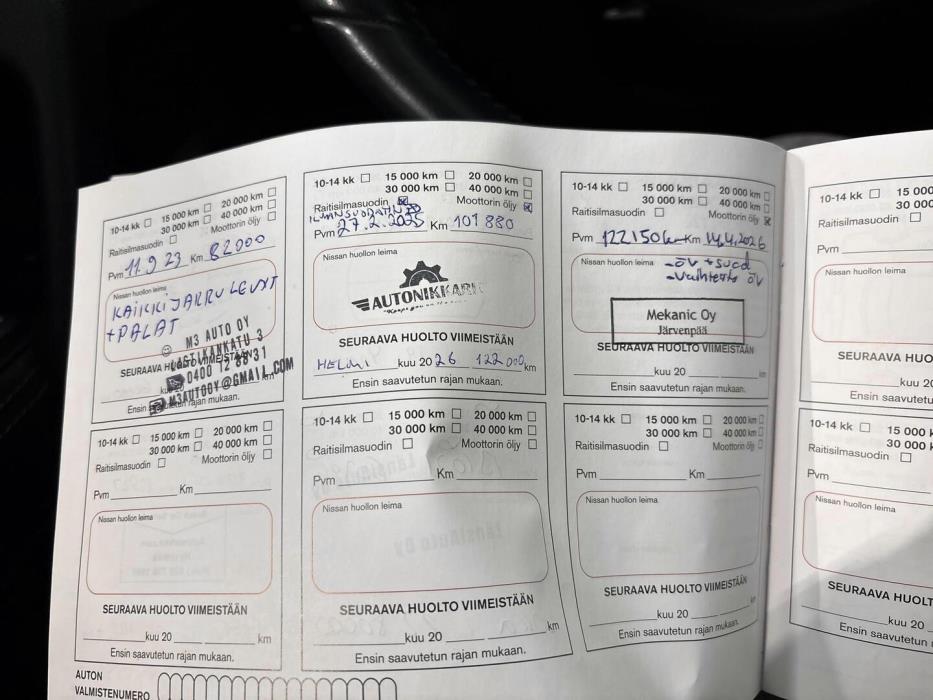 10-14 kk 15 000 km 20 000 km
30 000 km 40 000 km
Raitisilmasuodin Moottorin öljy
Pvm 11.9 23 Km 82000
Nissan huollon leima
KAIKKI JARRULEVYT
+PALAT
M3 AUTO OY
KATU 3
0400 12 8831
M3AUTOOY@GMAIL.COM
SEURAAVA HUOLTO VIIMEISTÄÄN
Ensin saavutetun rajan mukaan.
10-14 kk 15 000 km 20 000 km
30 000 km 40 000 km
Raitisilmasuodin Moottorin öljy
ILMANSUODATIN
Pvm 27.2.2025 Km 101 880
Nissan huollon leima
AUTONIKKARIT
SEURAAVA HUOLTO VIIMEISTÄÄN
HELMI kuu 20 26 122 000 km
Ensin saavutetun rajan mukaan.
10-14 kk 15 000 km 20 000 km
30 000 km 40 000 km
Raitisilmasuodin Moottorin öljy
Pvm 122150km Km 14.4.2026
Nissan huollon leima -öv +suod
-vaihteisto öv
Mekanic Oy
Järvenpää
SEURAAVA HUOLTO VIIMEISTÄÄN
kuu 20 km
Ensin saavutetun rajan mukaan.
10-14 kk 15 00
30 00
Raitisilmasuodin
Pvm
Nissan huollon leima
SEURAAVA HUO
kuu 2
Ensin saavutetu
10-14 kk 15 000 km 20 000 km
30 000 km 40 000 km
Raitisilmasuodin Moottorin öljy
Pvm Km
Nissan huollon leima
SEURAAVA HUOLTO VIIMEISTÄÄN
kuu 20 km
Ensin saavutetun rajan mukaan.
10-14 kk 15 000 km 20 000 km
30 000 km 40 000 km
Raitisilmasuodin Moottorin öljy
Pvm Km
Nissan huollon leima
SEURAAVA HUOLTO VIIMEISTÄÄN
kuu 20 km
Ensin saavutetun rajan mukaan.
10-14 kk 15 000 km 20 000 km
30 000 km 40 000 km
Raitisilmasuodin Moottorin öljy
Pvm Km
Nissan huollon leima
SEURAAVA HUOLTO VIIMEISTÄÄN
kuu 20 km
Ensin saavutetun rajan mukaan.
10-14 kk 15 000 k
30 000
Raitisilmasuodin
Pvm
Nissan huollon leima
SEURAAVA HUOLT
kuu 20
Ensin saavutetun
AUTON
VALMISTENUMERO